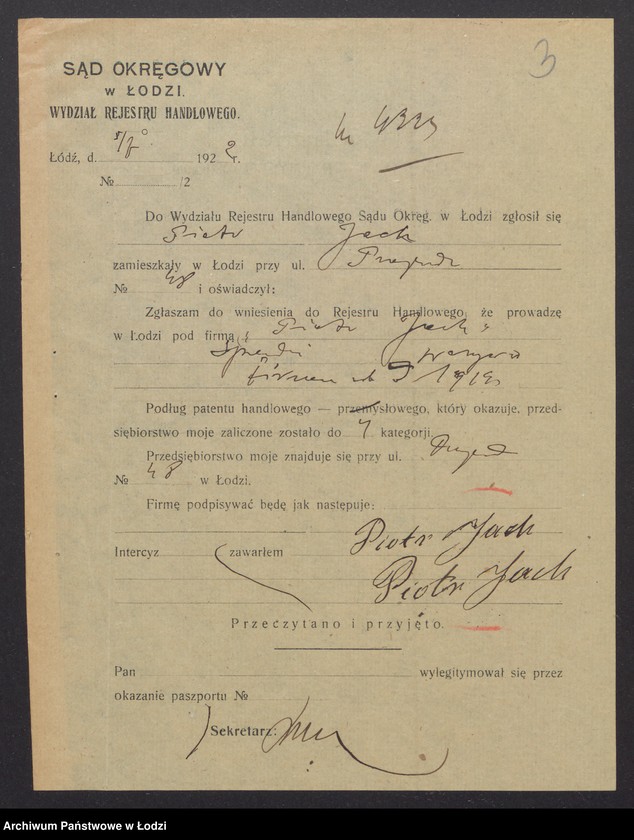 3
SĄD OKRĘGOWY
w ŁODZI.
WYDZIAŁ REJESTRU HANDLOWEGO.
Łódź, d. 1922 r.
№ /2
Do Wydziału Rejestru Handlowego Sądu Okręg. w Łodzi zgłosił się
Piotr Jach
zamieszkały w Łodzi przy ul.
№ 48 i oświadczył:
Zgłaszam do wniesienia do Rejestru Handlowego, że prowadzę
w Łodzi pod firmą: „Piotr Jach"
1919
Podług patentu handlowego — przemysłowego, który okazuje, przed-
siębiorstwo moje zaliczone zostało do kategorji.
Przedsiębiorstwo moje znajduje się przy ul.
№ 48 w Łodzi.
Firmę podpisywać będę jak następuje:
Piotr Jach
Intercyz zawarłem
Piotr Jach
Przeczytano i przyjęto.
Pan wylegitymował się przez
okazanie paszportu №
Sekretarz:
Archiwum Państwowe w Łodzi